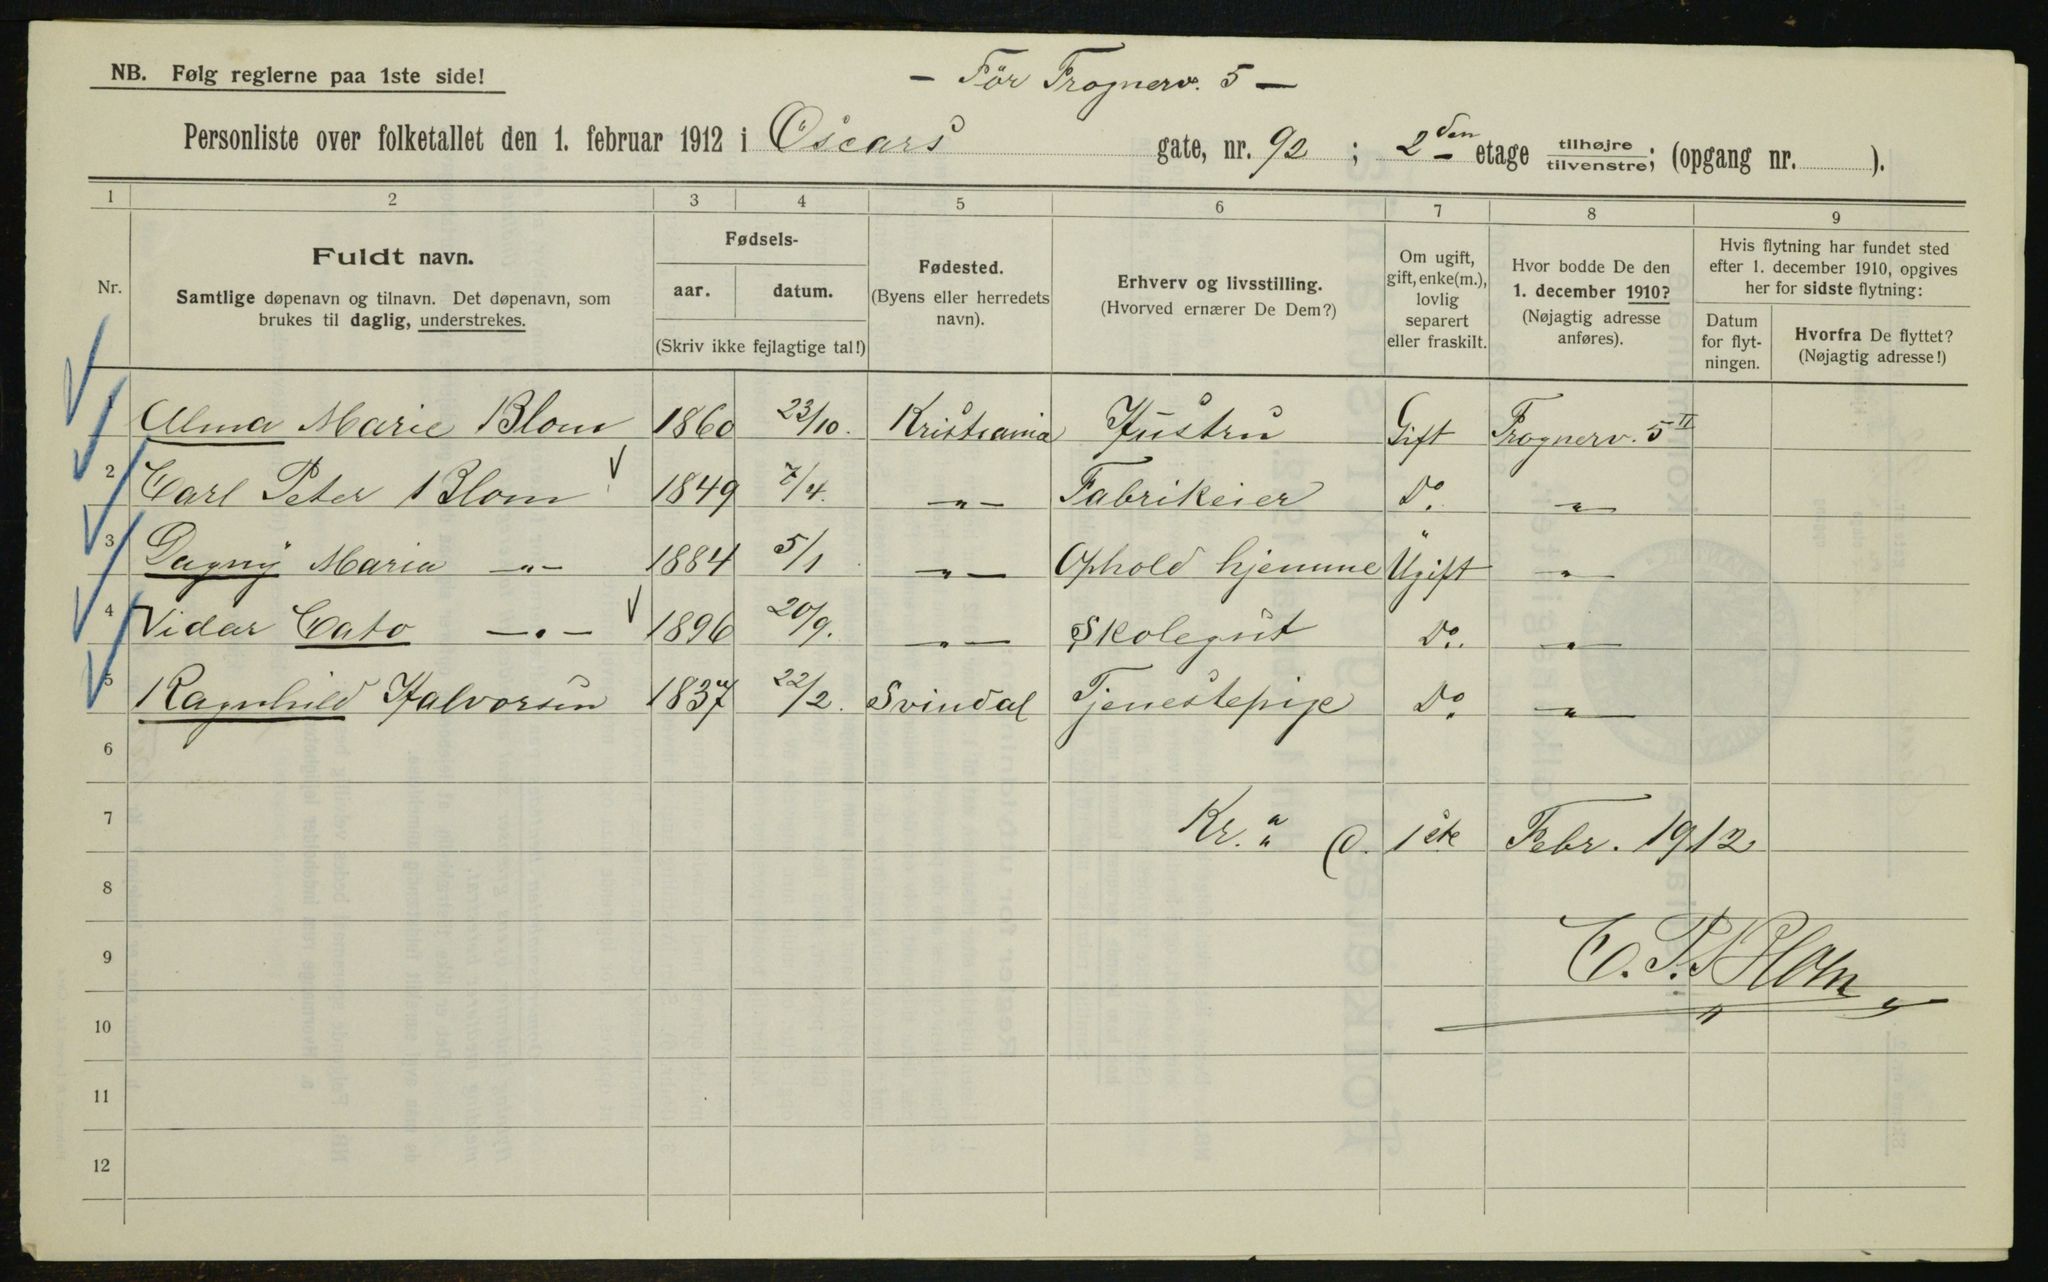 NB. Følg reglerne paa 1ste side!
— Før Frognerv. 5 —
Personliste over folketallet den 1. februar 1912 i Oscars gate, nr. 92 ; 2den etage tilhøjre / tilvenstre; (opgang nr. ).
1 2 3 4 5 6 7 8 9
Nr.
Fuldt navn.
Samtlige døpenavn og tilnavn. Det døpenavn, som
brukes til daglig, understrekes.
Fødsels-
aar. datum.
(Skriv ikke fejlagtige tal!)
Fødested.
(Byens eller herredets
navn).
Erhverv og livsstilling.
(Hvorved ernærer De Dem?)
Om ugift,
gift, enke(m.),
lovlig
separert
eller fraskilt.
Hvor bodde De den
1. december 1910?
(Nøjagtig adresse
anføres).
Hvis flytning har fundet sted
efter 1. december 1910, opgives
her for sidste flytning:
Datum
for flyt-
ningen.
Hvorfra De flyttet?
(Nøjagtig adresse!)
1 Alma Marie Blom 1860 23/10. Kristiania Hustru Gift Frognerv. 5 II
2 Carl Peter Blom 1849 7/4. —„— Fabrikeier Do. —„—
3 Dagny Maria —„— 1884 5/1 —„— Ophold hjemme Ugift —„—
4 Vidar Cato —„— 1896 20/9. —„— Skolegut Do. —„—
5 Ragnhild Halvorsen 1837 22/2. Svindal Tjenestepige Do. —„—
6
7 Kr.a d. 1ste Febr. 1912
8
9 C. P. Blom
10
11
12